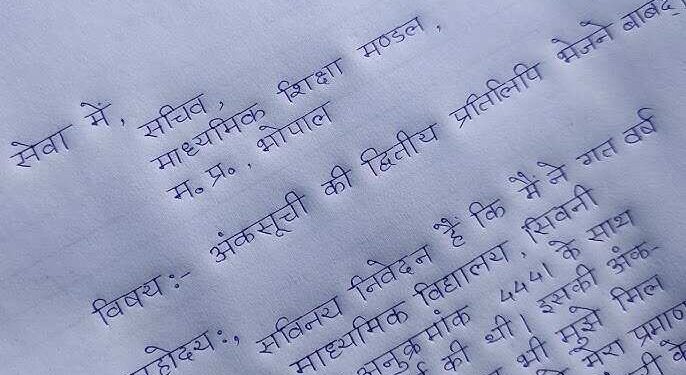 सेवा में,
सचिव,
माध्यमिक शिक्षा मण्डल,
म॰ प्र॰, भोपाल
विषय:- अंकसूची की द्वितीय प्रतिलिपि भेजने बाबद।
महोदय:,
सविनय निवेदन है कि मैं ने गत वर्ष
माध्यमिक विद्यालय, सिवनी
अनुक्रमांक 4441 के साथ
की थी। इसकी अंक-
भी मुझे मिल
मेरा प्रमाण